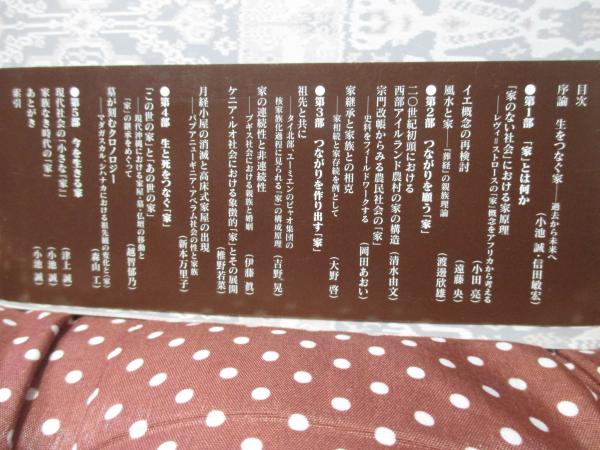 目次
序論　生をつなぐ家――過去から未来へ　（小池 誠・信田敏宏）
●第1部　「家」とは何か
「家のない社会」における家原理
――レヴィ=ストロースの「家」概念をアフリカから考える　（小田 亮）
イエ概念の再検討　（遠藤 央）
風水と家――『葬経』の親族理論　（渡邊欣雄）
●第2部　つながりを願う「家」
二〇世紀初頭における
西部アイルランド農村の家の構造　（清水由文）
宗門改帳からみる農民社会の「家」
――史料をフィールドワークする　（岡田あおい）
家継承と家族との相克
――家相続と家存続を例として　（大野 啓）
●第3部　つながりを作り出す「家」
祖先と共に
――タイ北部、ユーミエンのピャオ集団の
核家族化過程に見られる「家」の構成原理　（吉野 晃）
家の連続性と非連続性
――ブギス社会における親族と婚姻　（伊藤 眞）
ケニア・ルオ社会における象徴的「家」とその展開
（椎野若菜）
月経小屋の消滅と高床式家屋の出現
――パプアニューギニア・アベラム社会の性と家族　（新本万里子）
●第4部　生と死をつなぐ「家」
「この世の家」と「あの世の家」
――現代沖縄における家屋・墓・仏壇の移動と
「家」の継承をめぐって　（越智郁乃）
墓が刻むクロノロジー
――マダガスカル、シハナカにおける祖先観の変化と〈家〉
（森山 工）
●第5部　今を生きる家
現代社会の「小さな『家』」　（津上 誠）
家族なき時代の「家」　（小池 誠）
あとがき　（小池 誠）
索引